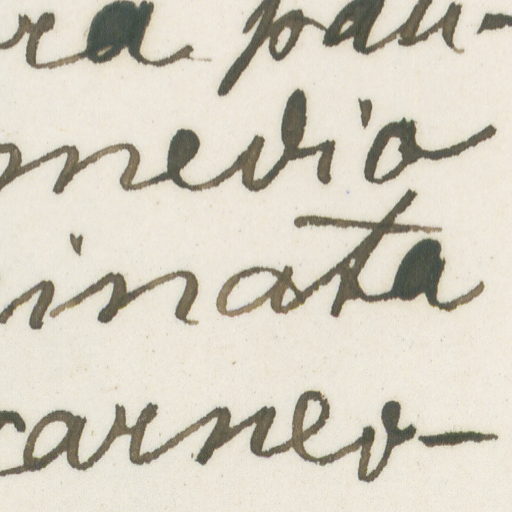 ra pau-
medio
inata
carneo-